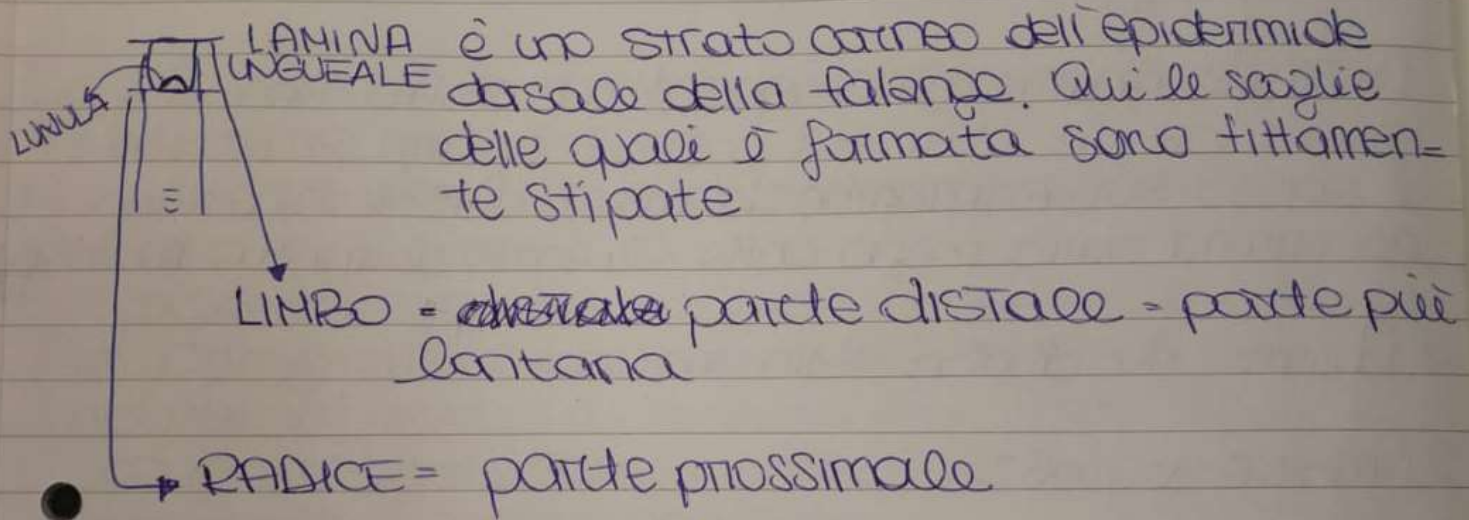 LAMINA è uno strato corneo dell'epidermide
UNGUEALE dorsale della falange. Qui le scaglie
LUNULA delle quali è formata sono fittamen=
te stipate
LIMBO = parte distale = parte più
lontana
RADICE = parte prossimale